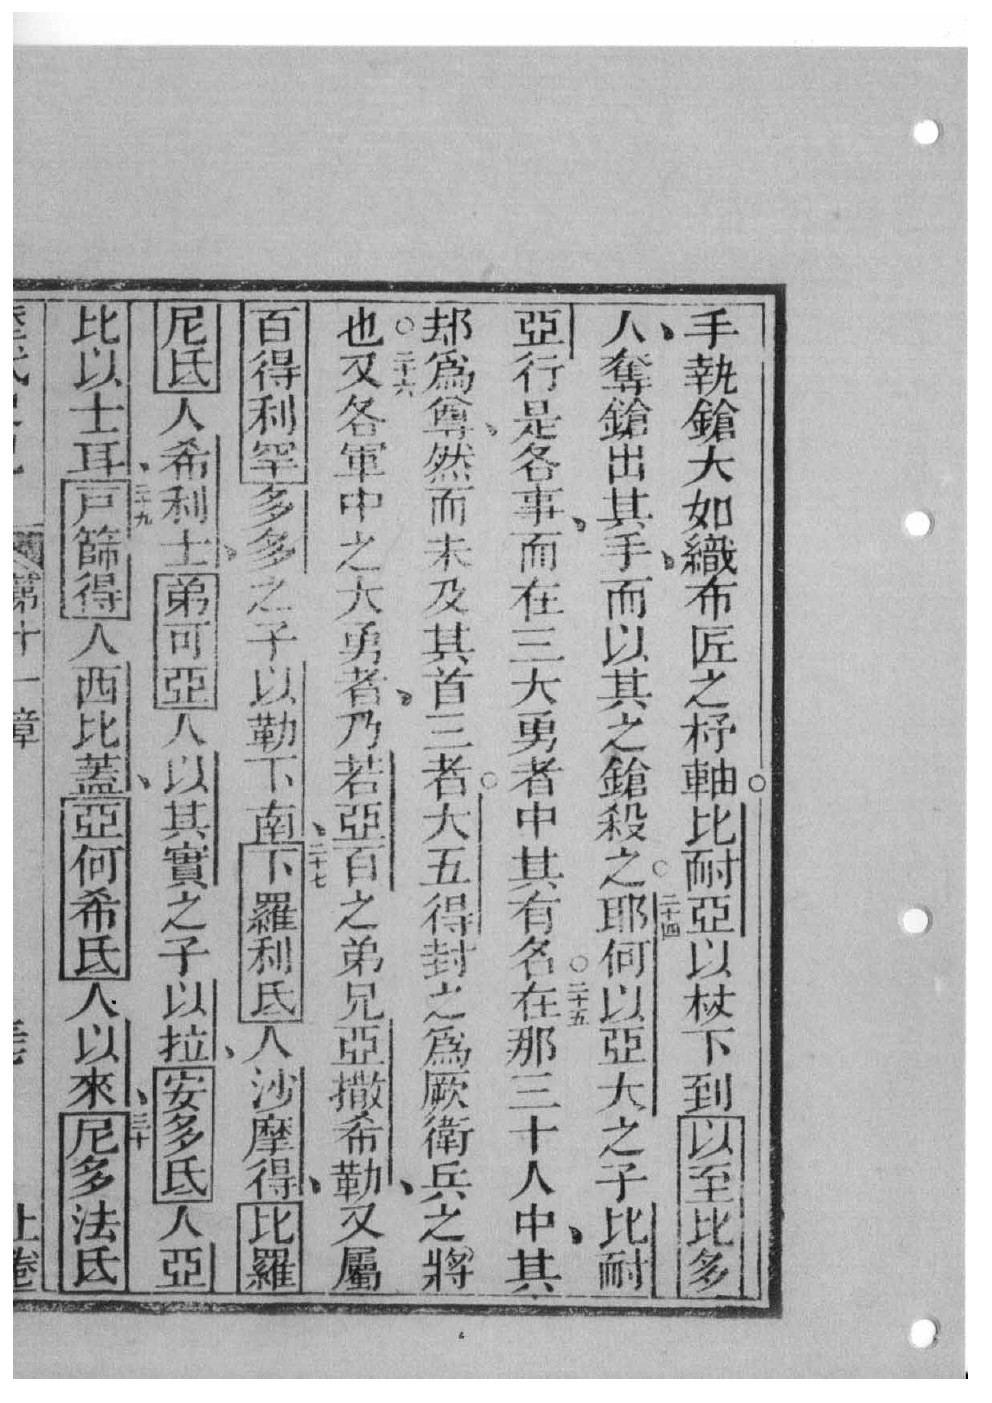 手執鎗大如織布匠之杼軸○比耐亞以杖下到以至比多
人、奪鎗出其手、而以其之鎗殺之○二十四耶何以亞大之子比耐
亞行是各事、而在三大勇者中其有名○二十五在那三十人中、其
邦爲尊、然而未及其首三者○大五得封之爲厥衛兵之將
也○二十六又各軍中之大勇者、乃若亞百之弟兄亞撒希勒、又屬
百得利罕多多之子以勒下南、二十七下羅利氏人沙摩得、比羅
尼氏人希利士、弟可亞人以其實之子以拉、安多氏人亞
比以士耳、二十九戸篩得人西比蓋、亞何希氏人以來、三十尼多法氏
第十一章
上卷